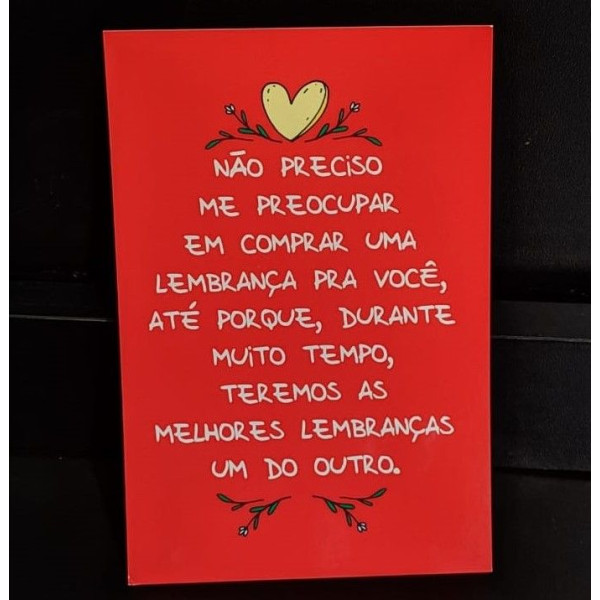 NÃO PRECISO
ME PREOCUPAR
EM COMPRAR UMA
LEMBRANÇA PRA VOCÊ,
ATÉ PORQUE, DURANTE
MUITO TEMPO,
TEREMOS AS
MELHORES LEMBRANÇAS
UM DO OUTRO.